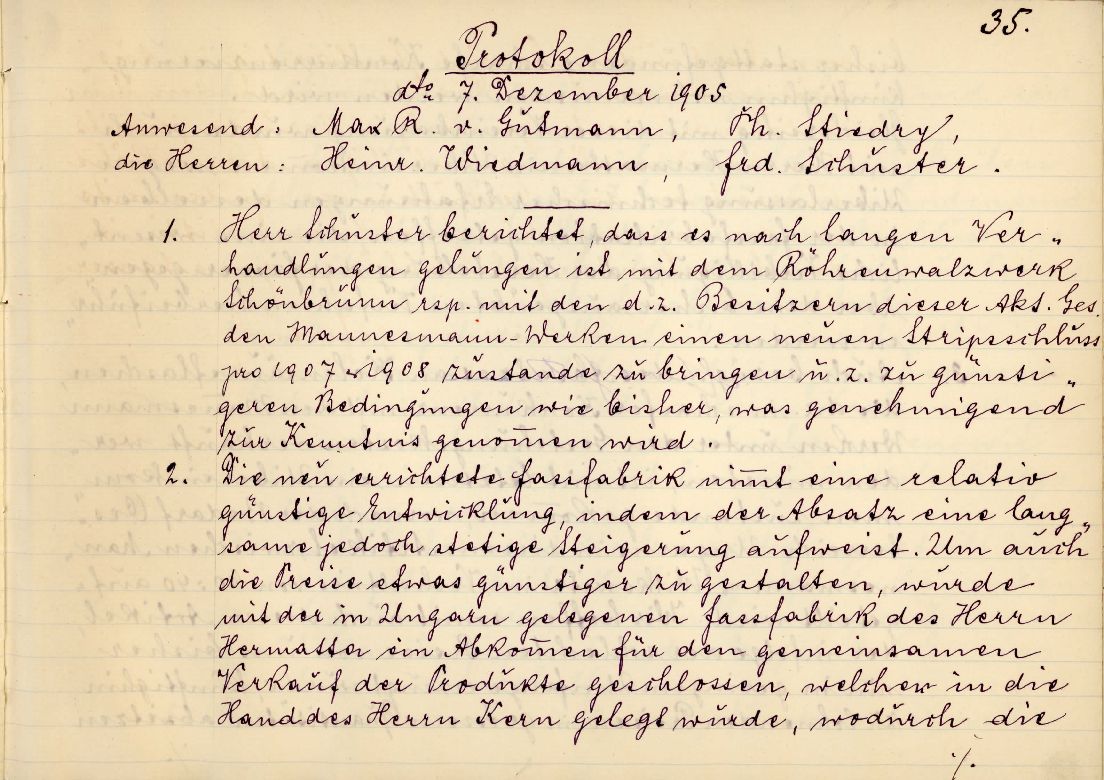 35.
Protokoll
dto 7. Dezember 1905
Anwesend: Max R. v. Gutmann, Th. Stiedry,
die Herren: Heinr. Wiedmann, frd. Schuster.
1. Herr Schuster berichtet, dass es nach langen Ver„
handlungen gelungen ist mit dem Röhrenwalzwerk
Schönbrunn rsp. mit den d.z. Besitzern dieser Akt. Ges.
den Mannesmann-Werken einen neuen Stripsschluss
pro 1907 & 1908 zustande zu bringen u. z. zu günsti„
geren Bedingungen wie bisher, was genehmigend
zur Kenntnis genom̅en wird.
2. Die neu errichtete Fassfabrik nim̅t eine relativ
günstige Entwicklung, indem der Absatz eine lang„
same jedoch stetige Steigerung aufweist. Um auch
die Preise etwas günstiger zu gestalten, wurde
mit der in Ungarn gelegenen Fassfabrik des Herrn
Hermatta ein Abkom̅en für den gemeinsamen
Verkauf der Produkte geschlossen, welcher in die
Hand des Herrn Kern gelegt wurde, wodurch die
./.